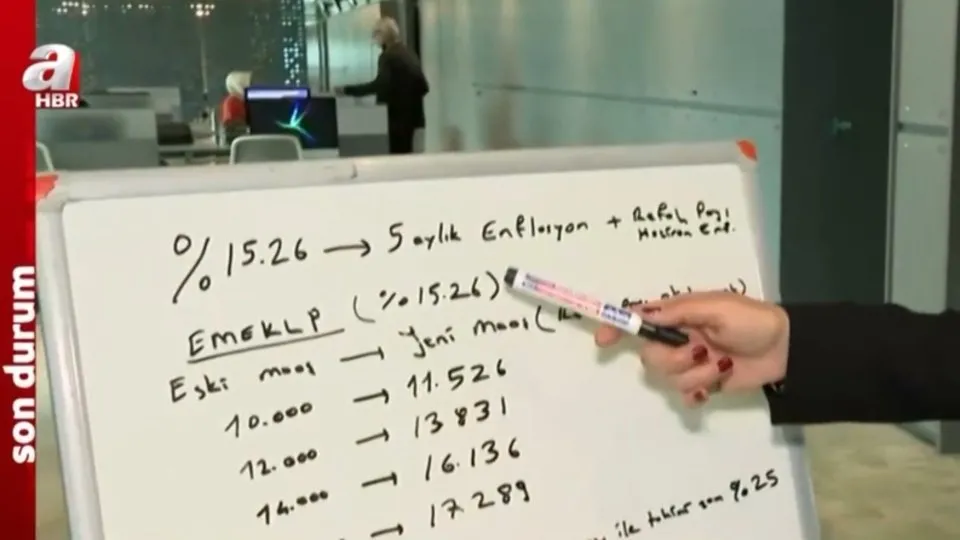 a
HBR
son durum
%15.26 → 5 aylık Enflasyon + Refah Payı
Haziran Enf.
EMEKLİ (%15.26)
Eski maaş → Yeni maaş (
10.000 → 11.526
12.000 → 13831
14.000 → 16.136
→ 17289
ile tahmini zam %25